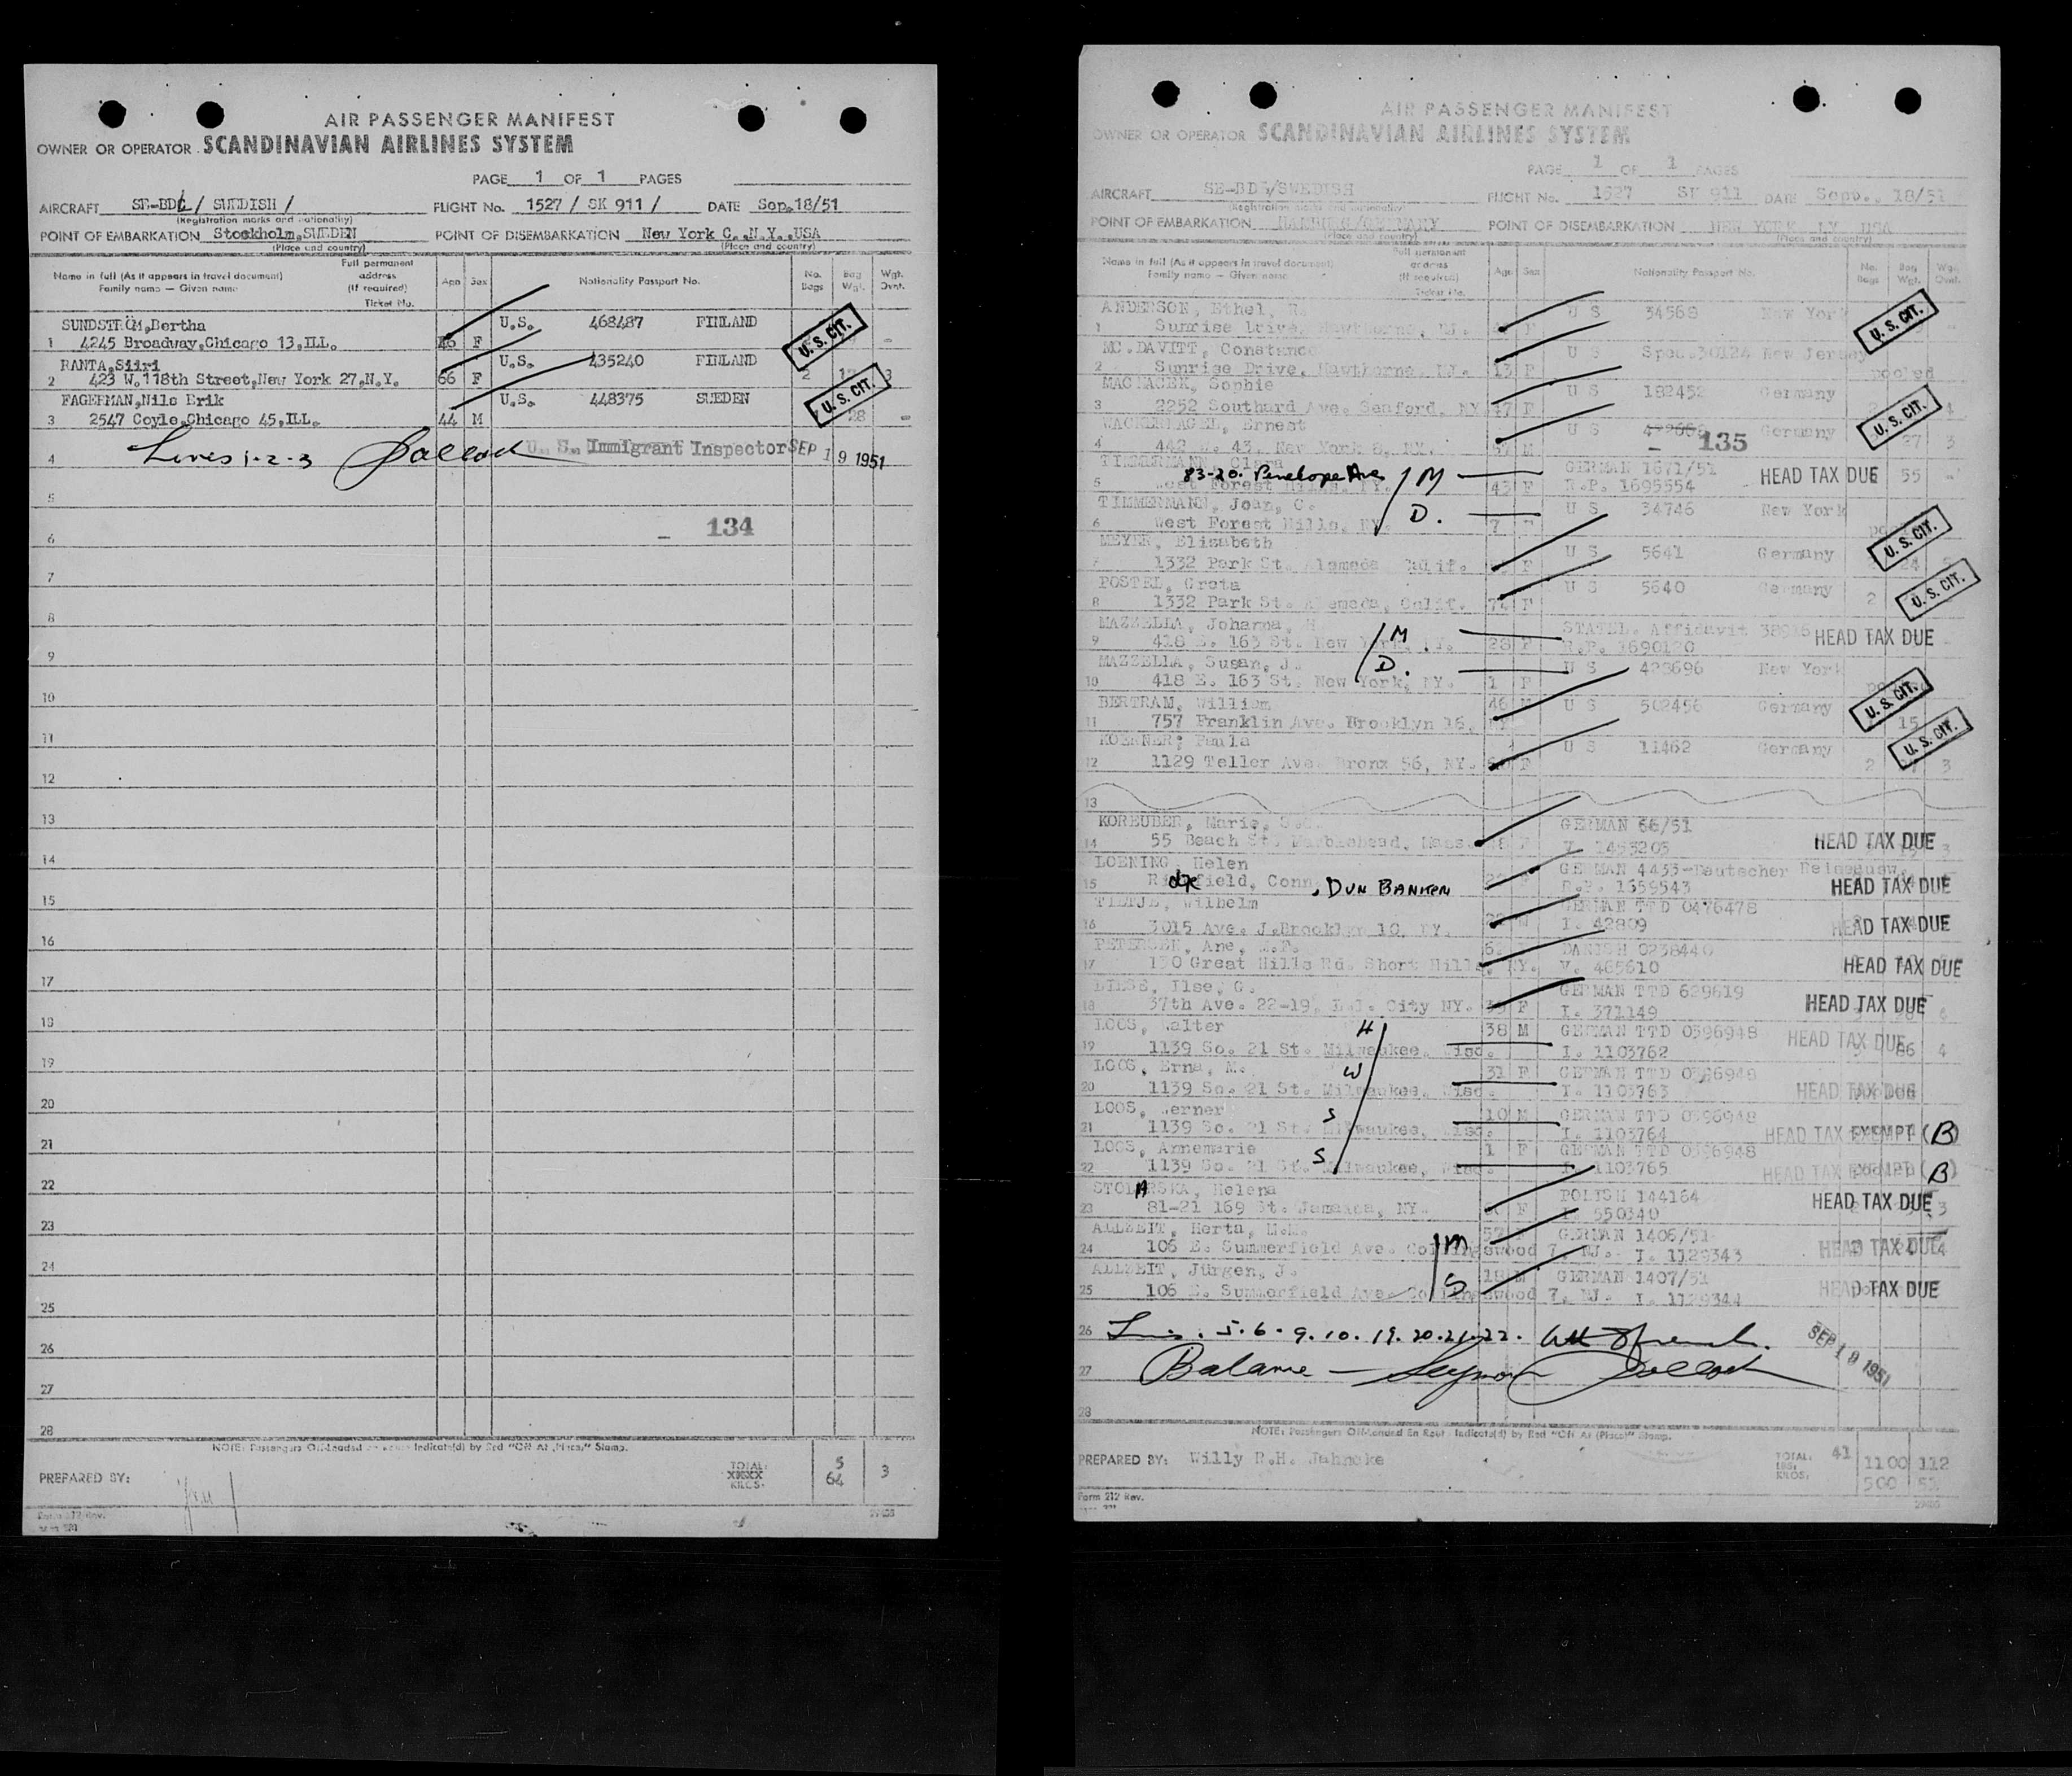 AIR PASSENGER MANIFEST
OWNER OR OPERATOR SCANDINAVIAN AIRLINES SYSTEM
PAGE 1 OF 1 PAGES
AIRCRAFT SE-BDE / SWEDISH / FLIGHT No. 1527 / SK 911 / DATE Sep.18/51
(Registration marks and nationality)
POINT OF EMBARKATION Stockholm,SWEDEN POINT OF DISEMBARKATION New York C.,N.Y.,USA
(Place and country) (Place and country)
Name in full (As it appears in travel document) Family name — Given name Full permanent address (If required) Ticket No. Age Sex Nationality Passport No. No. Bags Bag Wgt. Wgt. Ovnt.
SUNDSTRÖM,Bertha U.S. 468487 FINLAND U.S. CIT.
1 4245 Broadway,Chicago 13,ILL. F
RANTA,Siiri U.S. 435240 FINLAND
2 423 W.118th Street,New York 27,N.Y. 66 F 2 3
FAGERMAN,Nils Erik U.S. 448375 SWEDEN U.S. CIT.
3 2547 Coyle,Chicago 45,ILL. 44 M 28
4 Lines 1-2-3 Pollock U. S. Immigrant Inspector SEP 19 1951
5
134
6
7
8
9
10
11
12
13
14
15
16
17
18
19
20
21
22
23
24
25
26
27
28
NOTE: Passengers Off-Loaded en Route Indicate(d) by Red "Off At (Place)" Stamp.
PREPARED BY: TOTAL: KILOS. 5 64 3
AIR PASSENGER MANIFEST
OWNER OR OPERATOR SCANDINAVIAN AIRLINES SYSTEM
PAGE 1 OF 1 PAGES
AIRCRAFT SE-BDE/SWEDISH FLIGHT No. 1527 SK 911 DATE Sept., 18/51
(Registration marks and nationality)
POINT OF EMBARKATION HAMBURG/GERMANY POINT OF DISEMBARKATION NEW YORK USA
(Place and country) (Place and country)
Name in full (As it appears in travel document) Family name — Given name Full permanent address (If required) Ticket No. Age Sex Nationality Passport No. No. Bags Bag Wgt. Wgt. Ovnt.
ANDERSON, Ethel, R. U S 34568 New York
1 Sunrise Drive, Hawthorne, NJ. F U.S. CIT.
MC.DAVITT, Constance U S Spec.30124 New Jersey
2 Sunrise Drive, Hawthorne, NJ. 13 F pooled
MACHACEK, Sophie U S 182452 Germany
3 2252 Southard Ave. Seaford, NY 47 F 4
WACKERNAGEL, Ernest U S Germany U.S. CIT.
4 442 W. 43, New York 8, NY. 57 M 135 27 3
TIMMERMANN, Clara GERMAN 1671/51 HEAD TAX DUE
83-20. Penelope Ave / M
5 West Forest Hills, NY. 43 F R.P. 1695554 55
TIMMERMANN, Joan, C. D. U S 34746 New York
6 West Forest Hills, NY. 7 F
MEYER, Elisabeth U S 5641 Germany U.S. CIT.
7 1332 Park St. Alameda, Calif. F 24
POSTEL, Greta U S 5640 Germany U.S. CIT.
8 1332 Park St. Alameda, Calif. 74 F 2
MAZZELLA, Johanna, H /M STATEL. Affidavit HEAD TAX DUE
9 418 E. 163 St. New York, NY. 28 F R.P. 1690120
MAZZELLA, Susan, J. D. U S 428696 New York
10 418 E. 163 St. New York, NY. 1 F
BERTRAM, William 46 M U S 502456 Germany U.S. CIT.
11 757 Franklin Ave. Brooklyn 16, 15
KOERNER, Paula U S 11462 Germany U.S. CIT.
12 1129 Teller Ave. Bronx 56, NY. F 2 3
13
KOREUBER, Marie, GERMAN 66/51
14 55 Beach St. Marblehead, Mass. V. 1453203 HEAD TAX DUE 3
LOENING, Helen GERMAN 4453-Deutscher Reiseausw.
15 Ridgefield, Conn. , DUN BANKEN R.P. 1359543 HEAD TAX DUE
TIETJE, Wilhelm GERMAN TTD 0476478
16 3015 Ave. J.Brooklyn 10, NY. I. 42809 HEAD TAX DUE
PETERSEN, Ane, M.F. DANISH 0238440
17 130 Great Hills Rd. Short Hills, NY. V. 465610 HEAD TAX DUE
LIESS, Ilse, G. GERMAN TTD 629619
18 37th Ave. 22-19, L.I. City NY. F I. 371149 HEAD TAX DUE
LOOS, Walter H 38 M GERMAN TTD 0396948
19 1139 So. 21 St. Milwaukee, Wisc. I. 1103762 HEAD TAX DUE 86 4
LOOS, Erna, M. W 31 F GERMAN TTD 0396948
20 1139 So. 21 St. Milwaukee, Wisc. I. 1103763 HEAD TAX DUE
LOOS, Werner S 10 M GERMAN TTD 0396948
21 1139 So. 21 St. Milwaukee, Wisc. I. 1103764 HEAD TAX EXEMPT (B)
LOOS, Annemarie S 1 F GERMAN TTD 0396948
22 1139 So. 21 St. Milwaukee, Wisc. I. 1103765 HEAD TAX EXEMPT (B)
STOLARSKA, Helena POLISH 144164
23 81-21 169 St. Jamaica, NY. F I. 550340 HEAD TAX DUE 3
ALLZEIT, Herta, M.M. /M GERMAN 1406/51
24 106 E. Summerfield Ave. Collingswood 7, NJ. I. 1129343 HEAD TAX DUE 4
ALLZEIT, Jürgen, J. S 18 M GERMAN 1407/51
25 106 E. Summerfield Ave. Collingswood 7, NJ. I. 1129344 HEAD TAX DUE
26 5. 6. 9. 10. 19. 20. 21. 22. SEP 19 1951
27 Balance — Seymour Pollock
28
NOTE: Passengers Off-Loaded En Route Indicate(d) by Red "Off At (Place)" Stamp.
PREPARED BY: Willy R.H. Jahncke TOTAL: 41 LBS: 1100 112
KILOS: 500 51
Form 212 Rev.